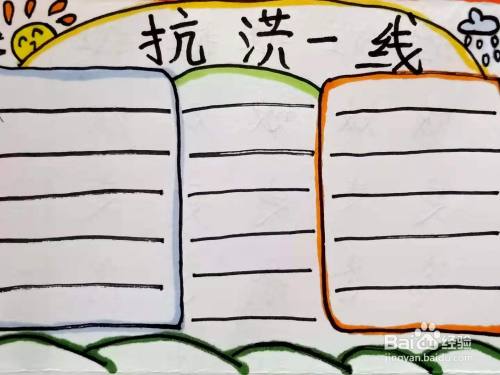 抗洪一线
Bai 经验
jingyan.baidu.com